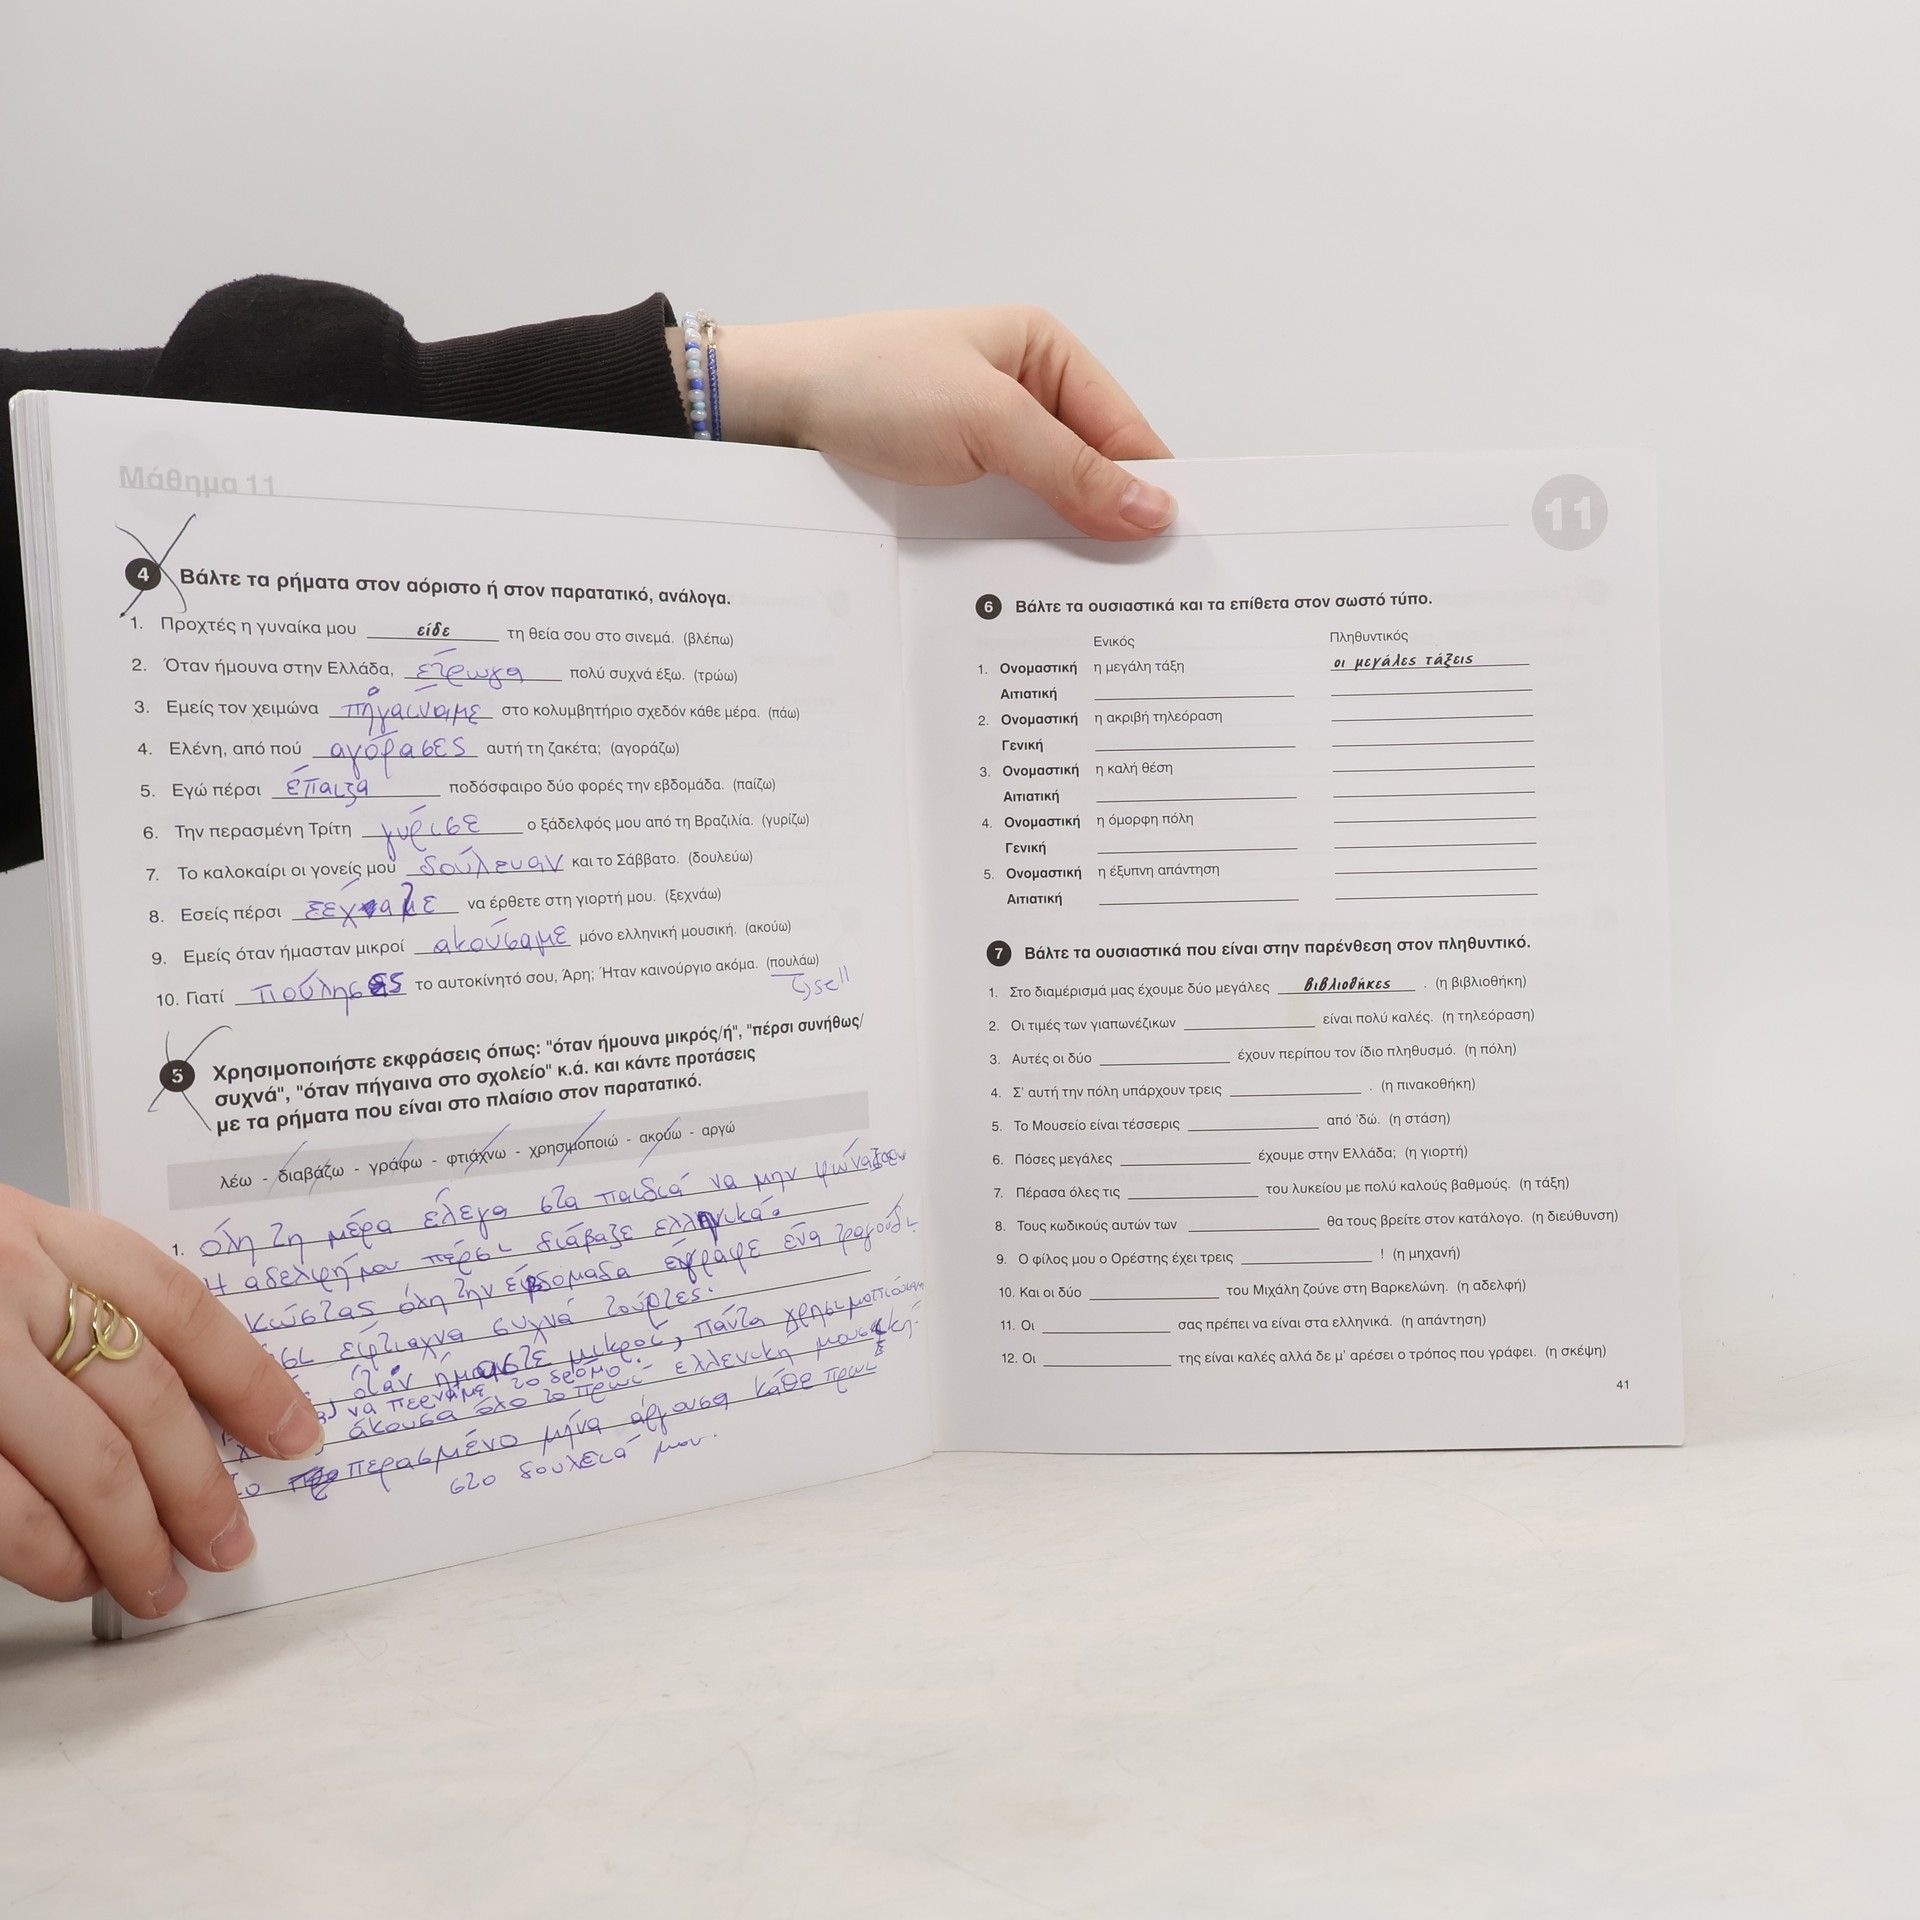 Μάθημα 11
4 Βάλτε τα ρήματα στον αόριστο ή στον παρατατικό, ανάλογα.
1. Προχτές η γυναίκα μου είδε τη θεία σου στο σινεμά. (βλέπω)
2. Όταν ήμουνα στην Ελλάδα, έτρωγα πολύ συχνά έξω. (τρώω)
3. Εμείς τον χειμώνα πηγαίναμε στο κολυμβητήριο σχεδόν κάθε μέρα. (πάω)
4. Ελένη, από πού αγόρασες αυτή τη ζακέτα; (αγοράζω)
5. Εγώ πέρσι έπαιζα ποδόσφαιρο δύο φορές την εβδομάδα. (παίζω)
6. Την περασμένη Τρίτη γύρισε ο ξάδελφός μου από τη Βραζιλία. (γυρίζω)
7. Το καλοκαίρι οι γονείς μου δούλευαν και το Σάββατο. (δουλεύω)
8. Εσείς πέρσι να έρθετε στη γιορτή μου. (ξεχνάω)
9. Εμείς όταν ήμασταν μικροί ακούσαμε μόνο ελληνική μουσική. (ακούω)
10. Γιατί πούλησες το αυτοκίνητό σου, Άρη; Ήταν καινούργιο ακόμα. (πουλάω)
sell
5 Χρησιμοποιήστε εκφράσεις όπως: "όταν ήμουνα μικρός/ή", "πέρσι συνήθως/
συχνά", "όταν πήγαινα στο σχολείο" κ.ά. και κάντε προτάσεις
με τα ρήματα που είναι στο πλαίσιο στον παρατατικό.
λέω - διαβάζω - γράφω - φτιάχνω - χρησιμοποιώ - ακούω - αργώ
1. όλη τη μέρα έλεγα στα παιδιά να μην
Η αδελφή μου πέρσι διάβαζε ελληνικά.
Κώστας όλη την εβδομάδα έγραφε ένα τραγούδι.
έφτιαχνα συχνά τούρτες.
όταν ήμαστε μικροί, πάντα
να περνάμε το δρόμο.
άκουσα όλο το πρωί ελλενική
το περασμένο μήνα άργουσα κάθε πρωί
στο δουλειά μου.
11
6 Βάλτε τα ουσιαστικά και τα επίθετα στον σωστό τύπο.
Ενικός Πληθυντικός
1. Ονομαστική η μεγάλη τάξη οι μεγάλες τάξεις
Αιτιατική
2. Ονομαστική η ακριβή τηλεόραση
Γενική
3. Ονομαστική η καλή θέση
Αιτιατική
4. Ονομαστική η όμορφη πόλη
Γενική
5. Ονομαστική η έξυπνη απάντηση
Αιτιατική
7 Βάλτε τα ουσιαστικά που είναι στην παρένθεση στον πληθυντικό.
1. Στο διαμέρισμά μας έχουμε δύο μεγάλες βιβλιοθήκες . (η βιβλιοθήκη)
2. Οι τιμές των γιαπωνέζικων είναι πολύ καλές. (η τηλεόραση)
3. Αυτές οι δύο έχουν περίπου τον ίδιο πληθυσμό. (η πόλη)
4. Σ' αυτή την πόλη υπάρχουν τρεις . (η πινακοθήκη)
5. Το Μουσείο είναι τέσσερις από 'δώ. (η στάση)
6. Πόσες μεγάλες έχουμε στην Ελλάδα; (η γιορτή)
7. Πέρασα όλες τις του λυκείου με πολύ καλούς βαθμούς. (η τάξη)
8. Τους κωδικούς αυτών των θα τους βρείτε στον κατάλογο. (η διεύθυνση)
9. Ο φίλος μου ο Ορέστης έχει τρεις ! (η μηχανή)
10. Και οι δύο του Μιχάλη ζούνε στη Βαρκελώνη. (η αδελφή)
11. Οι σας πρέπει να είναι στα ελληνικά. (η απάντηση)
12. Οι της είναι καλές αλλά δε μ' αρέσει ο τρόπος που γράφει. (η σκέψη)
41